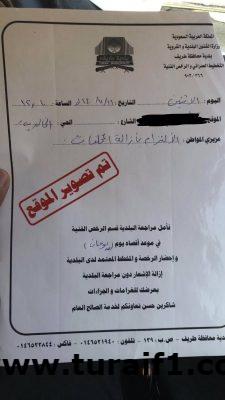 المملكة العربية السعودية
وزارة الشئون البلدية و القروية
بلدية محافظة طريف
التخطيط العمراني و الرخص الفنية
اليوم : الاثنين التاريخ : الساعة :
الموقع الشارع : الحي :
عزيزي المواطن :
تم تصوير الموقع
نأمل مراجعة البلدية قسم الرخص الفنية
في موعد أقصاه يوم ( يومان )
و إحضار الرخصة و المخطط المعتمد لدى البلدية
إزالة الإشعار دون مراجعة البلدية
يعرضك للغرامات و الجزاءات
شاكرين حسن تعاونكم لخدمة الصالح العام
بلدية محافظة طريف - ص.ب ١٣٩ - تلفون : ٠١٤٦٥٢١٩٤٠ - فاكس : ٠١٤٦٥٢٢٨٤٤
www.turaif1.com